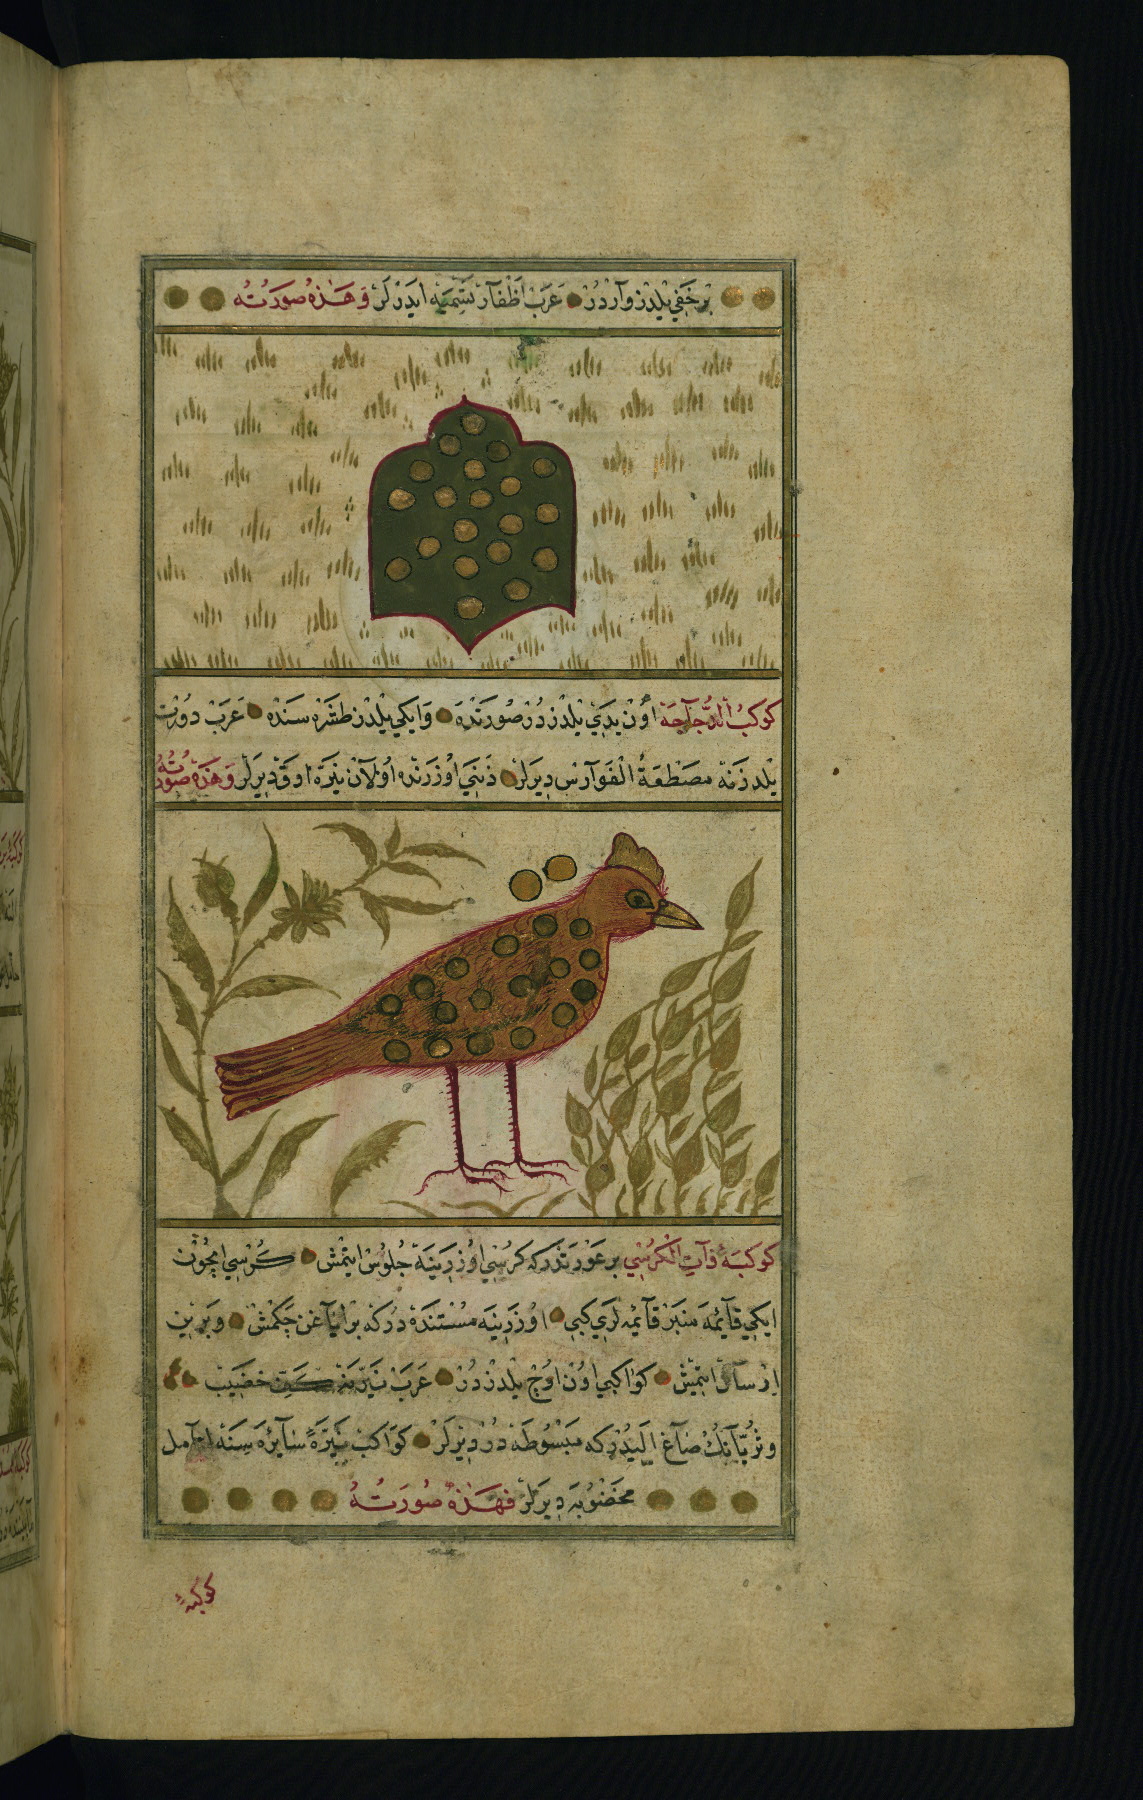 بر خفي يلدز واردر عرب اظفار تسميه ايدرلر و هذه صورته
كوكب الدجاجة اون يدي يلدز در صورتده وايكي يلدز طشره سنده عرب دورت
يلدزنه مصطعة الفوارس ديرلر ذنبي اوزرنده اولان نيره اوق ديرلر وهذه صورته
كوكبة ذات الكرسي بر عورتدر كه كرسي اوزرينه جلوس ايتمش كرسي ايچون
ايكي قايمه منبر قايمه لري كبي اوزرينه مستنده در كه بر اياغن چكمش وبرين
ارسال ايتمش كواكبي اون اوچ يلدز در عرب نيرينه كف خضيب
وثريانك صاغ اليدر كه مبسوطه در ديرلر كواكب نيرة سايره سنه انامل
مخضوبه ديرلر فهذه صورته
كوكبة